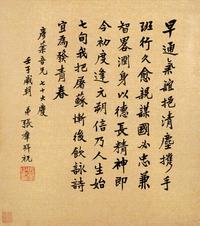 早通挹清塵攜手
班行久愈親謀國必忠兼
智畧潤身以德長精神即
今初度逢元朔信乃人生始
七旬我把屠蘇慚後飲詠詩
宜為發青春
彥棻吾兄七十大慶
壬子歲朝 弟張羣拜祝